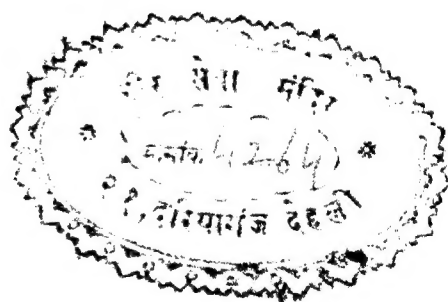 वीर सेवा मंदिर
क्रमांक 4264
२१, दरियागंज देहली